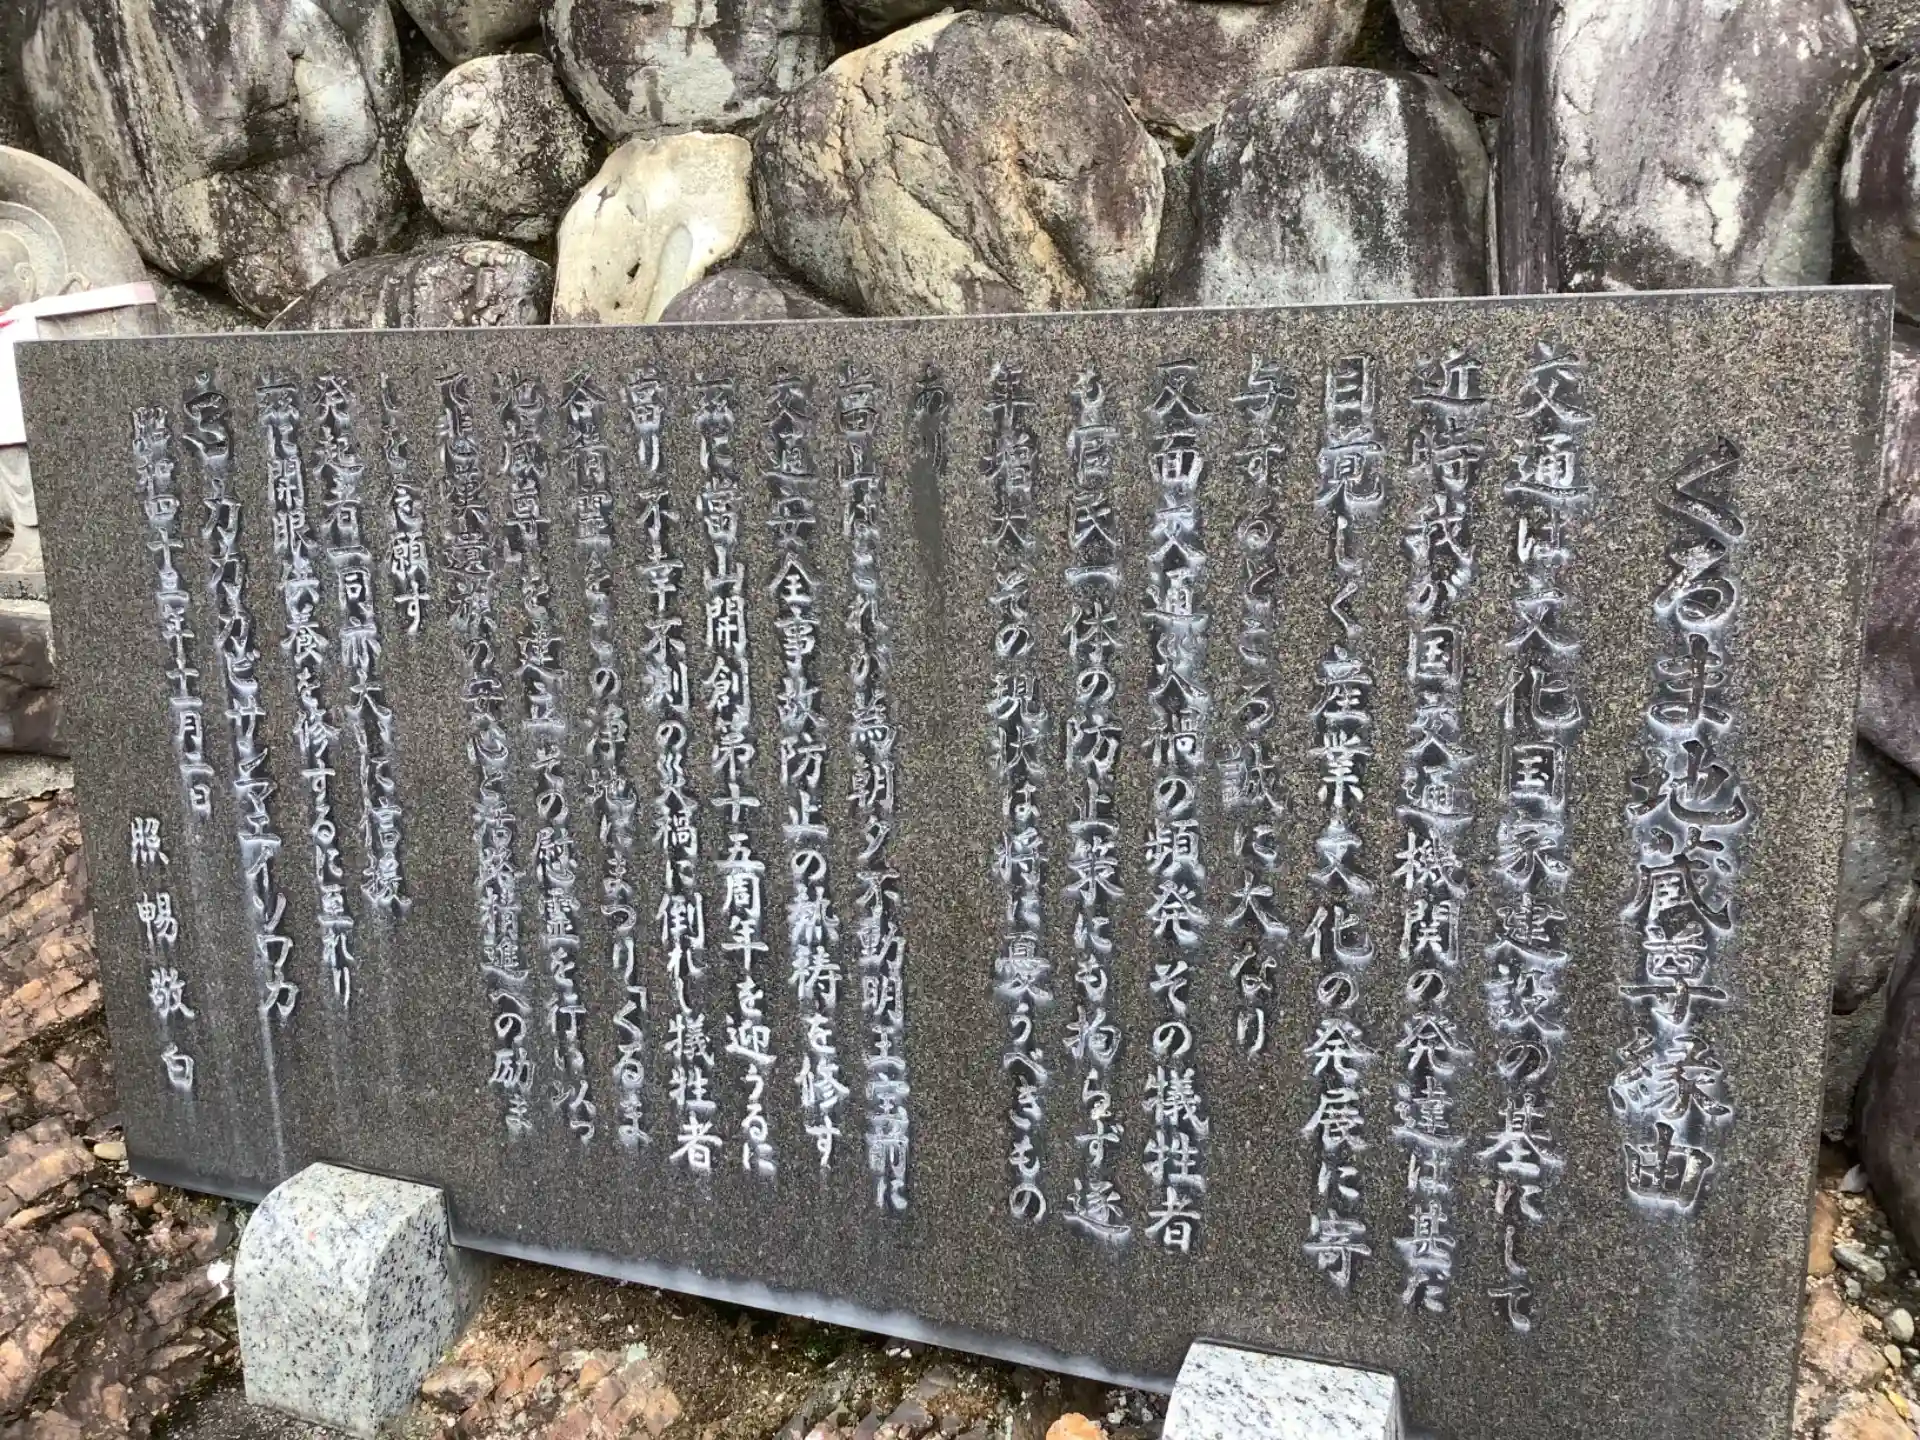 くるま地蔵尊縁由
交通は文化国家建設の基にして
近時我が国交通機関の発達は甚だ
目覚しく産業文化の発展に寄
与するところ誠に大なり
反面交通災禍の頻発その犠牲者
も官民一体の防止策にも拘らず逐
年増大その現状は将に憂うべきもの
あり
当山はこれが為朝夕不動明王宝前に
交通安全事故防止の熱祷を修す
茲に當山開創第十五周年を迎うるに
當り不幸不測の災禍に倒れし犠牲者
各精霊をこの浄地にまつり「くるま
地蔵尊」を建立その慰霊を行い以っ
て悲嘆遺族の安心と活路精進への励ま
しを念願す
発起者一同亦大に信援
茲に開眼供養を修するに至れり
カカカビサンマエイソワカ
昭和四十三年十一月二日
照暢敬白